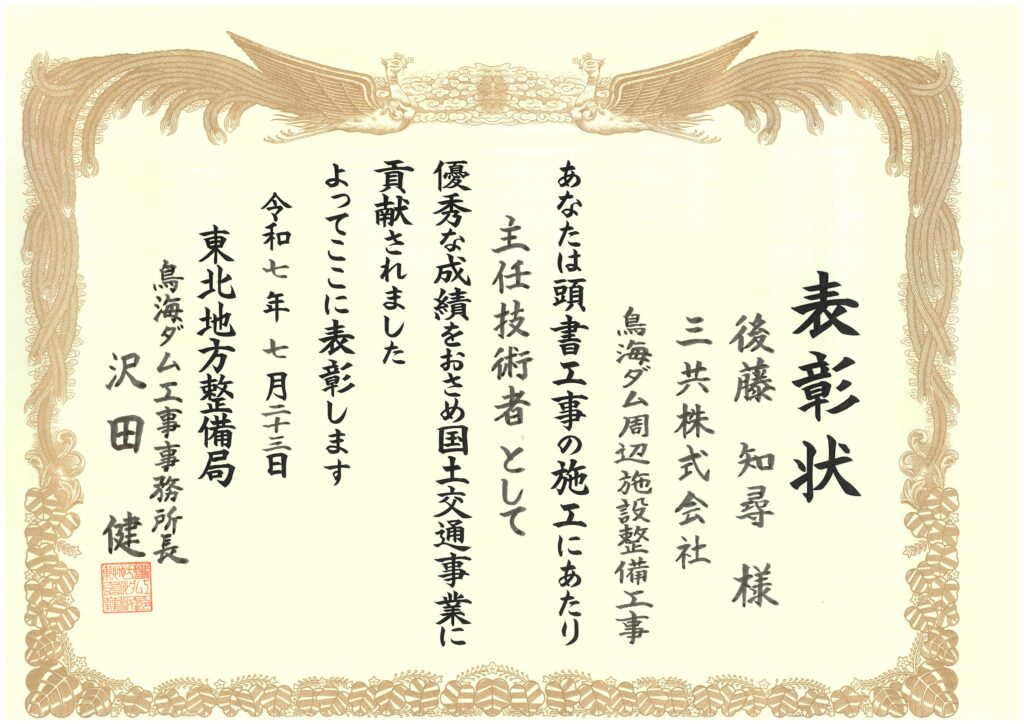 表彰状
後藤 知尋 様
三共株式会社
鳥海ダム周辺施設整備工事
あなたは頭書工事の施工にあたり
主任技術者として
優秀な成績をおさめ国土交通事業に
貢献されました
よってここに表彰します
令和七年七月二十三日
東北地方整備局
鳥海ダム工事事務所長
沢田 健